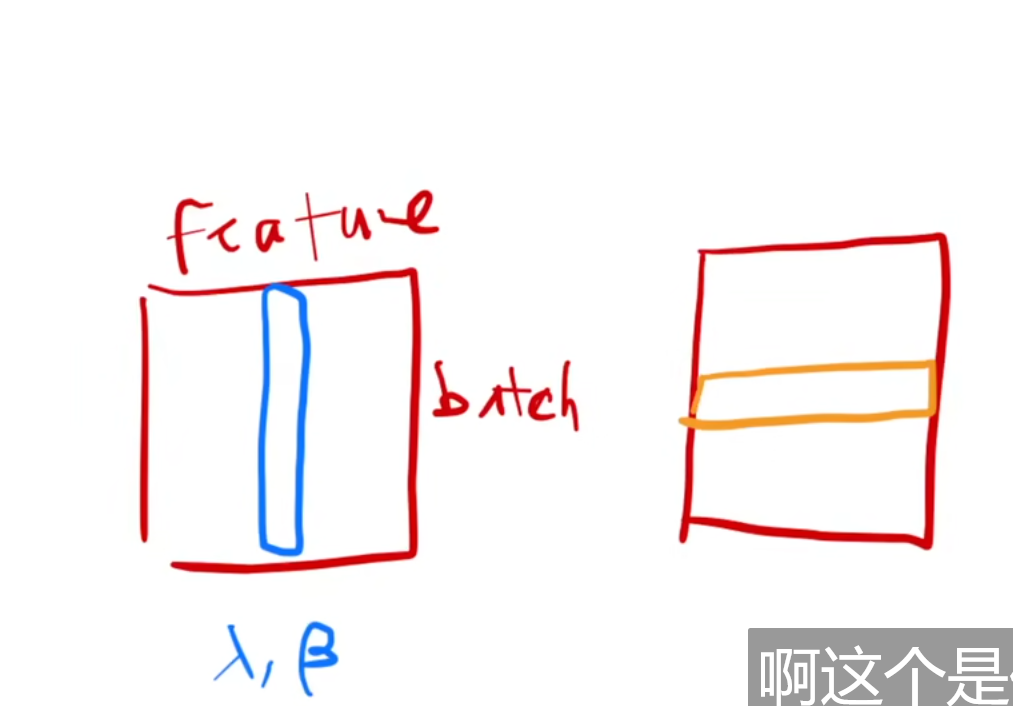 feature
batch
λ, β
啊这个是